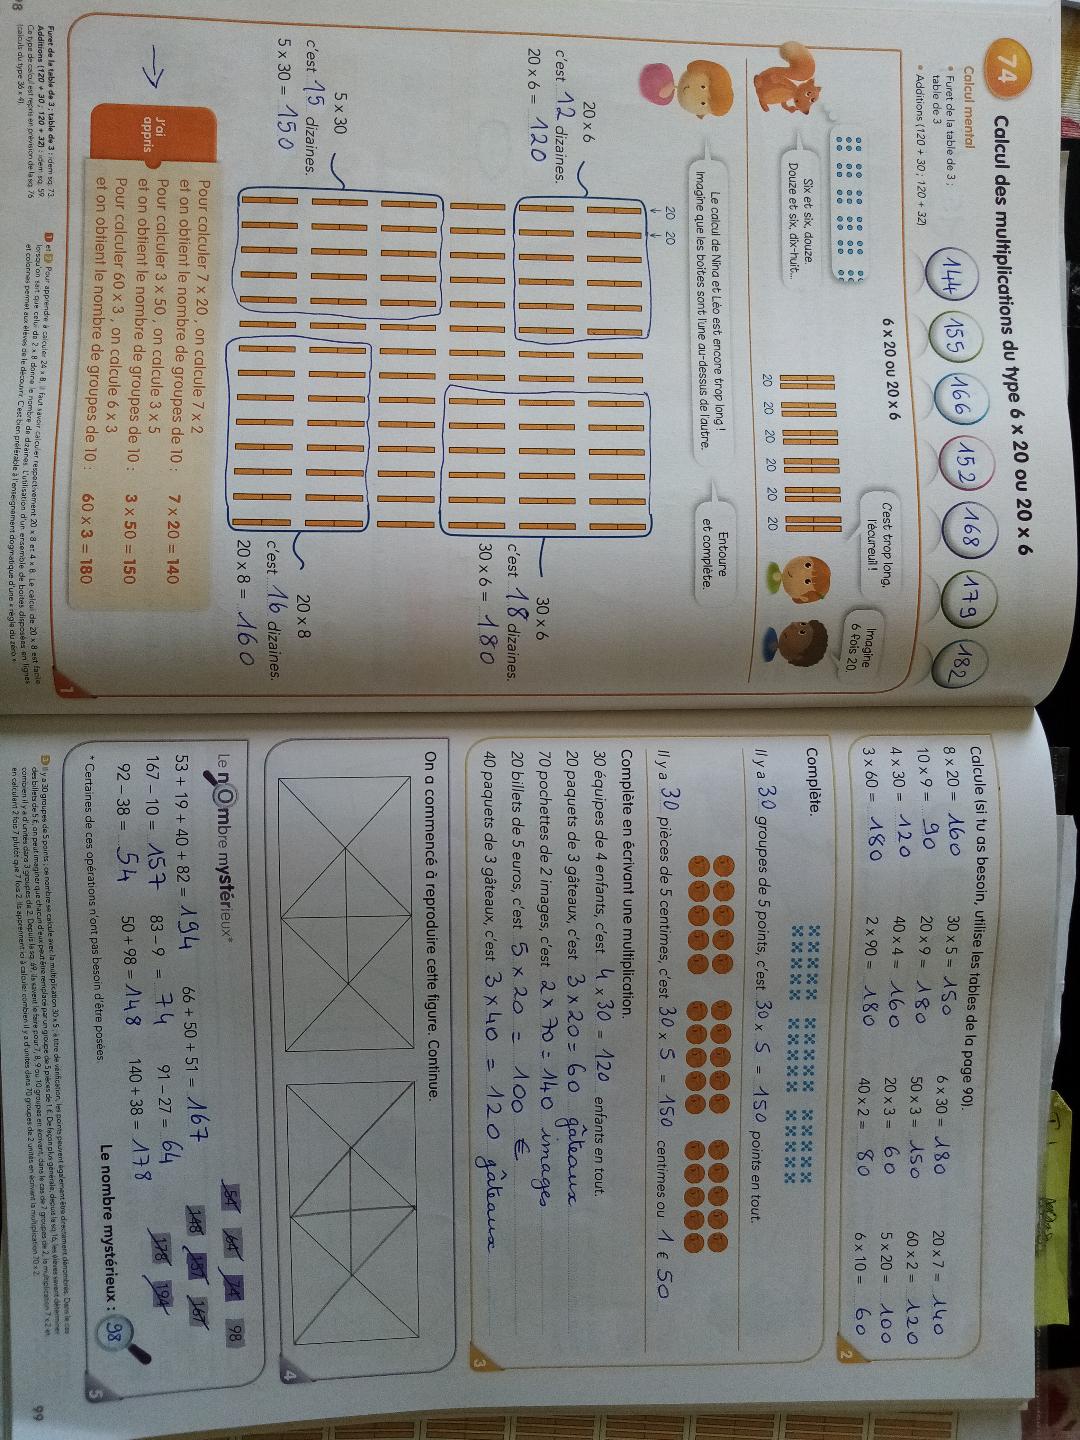 74
Calcul des multiplications du type 6 x 20 ou 20 x 6
Calcul mental
• Furet de la table de 3 ;
table de 3
• Additions (120 + 30 ; 120 + 32)
144 155 166 152 168 179 182
6 x 20 ou 20 x 6
Six et six, douze.
Douze et six, dix-huit...
20 20 20 20 20 20
C'est trop long,
l'écureuil !
Imagine
6 fois 20.
Le calcul de Nina et Léo est encore trop long !
Imagine que les boîtes sont l'une au-dessus de l'autre.
Entoure
et complète.
20 20
20 x 6
c'est 12 dizaines.
20 x 6 = 120
30 x 6
c'est 18 dizaines.
30 x 6 = 180
5 x 30
c'est 15 dizaines.
5 x 30 = 150
20 x 8
c'est 16 dizaines.
20 x 8 = 160
J'ai
appris
Pour calculer 7 x 20, on calcule 7 x 2
et on obtient le nombre de groupes de 10 : 7 x 20 = 140
Pour calculer 3 x 50, on calcule 3 x 5
et on obtient le nombre de groupes de 10 : 3 x 50 = 150
Pour calculer 60 x 3, on calcule 6 x 3
et on obtient le nombre de groupes de 10 : 60 x 3 = 180
1
Furet de la table de 3 ; table de 3 : idem sq. 73
Additions (120 + 30 ; 120 + 32) : idem sq. 59
Ce type de calcul est repris en prévision de la sq. 76
(calculs du type 36 x 4).
Pour apprendre à calculer 24 x 8, il faut savoir calculer respectivement 20 x 8 et 4 x 8. Le calcul de 20 x 8 est facile
lorsqu'on sait que celui de 2 x 8 donne le nombre de dizaines. L'utilisation d'un ensemble de boîtes disposées en lignes
et colonnes permet aux élèves de le découvrir. C'est bien préférable à l'enseignement dogmatique d'une « règle du zéro ».
Calcule (si tu as besoin, utilise les tables de la page 90).
8 x 20 = 160 30 x 5 = 150 6 x 30 = 180 20 x 7 = 140
10 x 9 = 90 20 x 9 = 180 50 x 3 = 150 60 x 2 = 120
4 x 30 = 120 40 x 4 = 160 20 x 3 = 60 5 x 20 = 100
3 x 60 = 180 2 x 90 = 180 40 x 2 = 80 6 x 10 = 60
2
Complète.
Il y a 30 groupes de 5 points, c'est 30 x 5 = 150 points en tout.
Il y a 30 pièces de 5 centimes, c'est 30 x 5 = 150 centimes ou 1 € 50
Complète en écrivant une multiplication.
30 équipes de 4 enfants, c'est 4 x 30 = 120 enfants en tout.
20 paquets de 3 gâteaux, c'est 3 x 20 = 60 gâteaux
70 pochettes de 2 images, c'est 2 x 70 = 140 images
20 billets de 5 euros, c'est 5 x 20 = 100 €
40 paquets de 3 gâteaux, c'est 3 x 40 = 120 gâteaux
3
On a commencé à reproduire cette figure. Continue.
4
Le nOmbre mystérieux*
53 + 19 + 40 + 82 = 194 66 + 50 + 51 = 167
167 – 10 = 157 83 – 9 = 74 91 – 27 = 64
92 – 38 = 54 50 + 98 = 148 140 + 38 = 178
* Certaines de ces opérations n'ont pas besoin d'être posées.
54 64 74 98
148 157 167
178 194
Le nombre mystérieux : 98
5
99